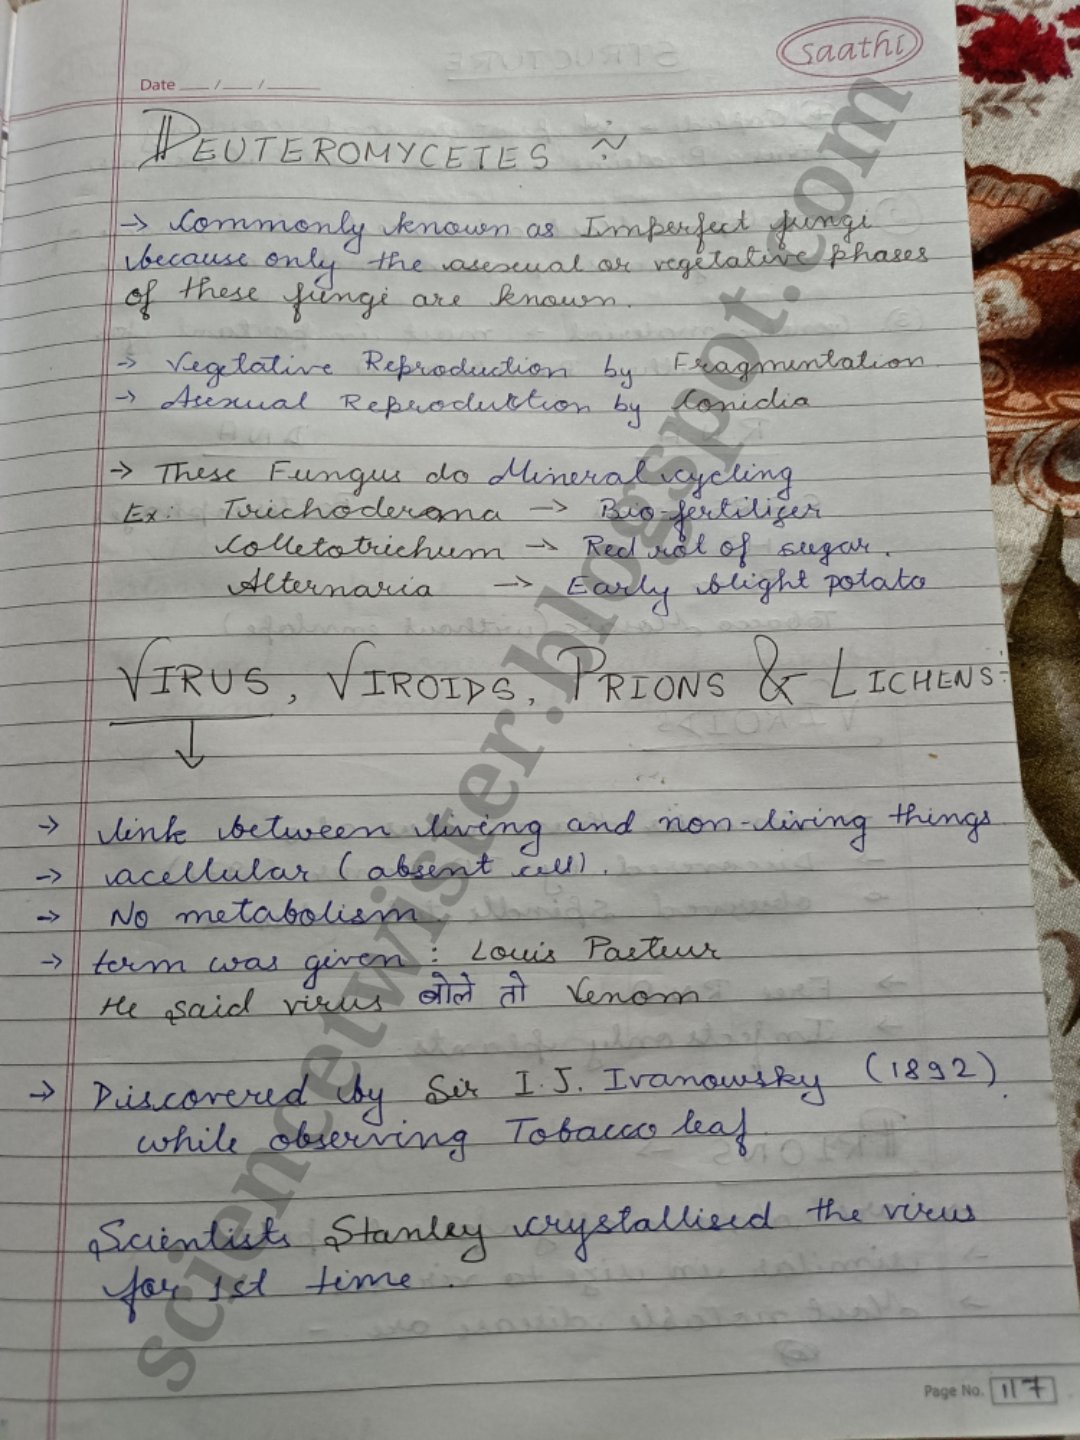 saathi
Date __ / __ / ____
DEUTEROMYCETES ~
→ Commonly known as Imperfect fungi
because only the asexual or vegetative phases
of these fungi are known.
→ Vegetative Reproduction by Fragmentation
→ Asexual Reproduction by Conidia
→ These Fungus do Mineral cycling
Ex: Trichoderma → Bio-fertilizer
Colletotrichum → Red rot of sugar.
Alternaria → Early blight potato
VIRUS, VIROIDS, PRIONS & LICHENS :-
→ link between living and non-living things
→ acellular (absent cell).
→ No metabolism
→ term was given : Louis Pasteur
He said virus बोले तो Venom
→ Discovered by Sir I.J. Ivanowsky (1892).
while observing Tobacco leaf
Scientists Stanley crystallised the virus
for 1st time.
Page No. 117
sciencetwister.blogspot.com